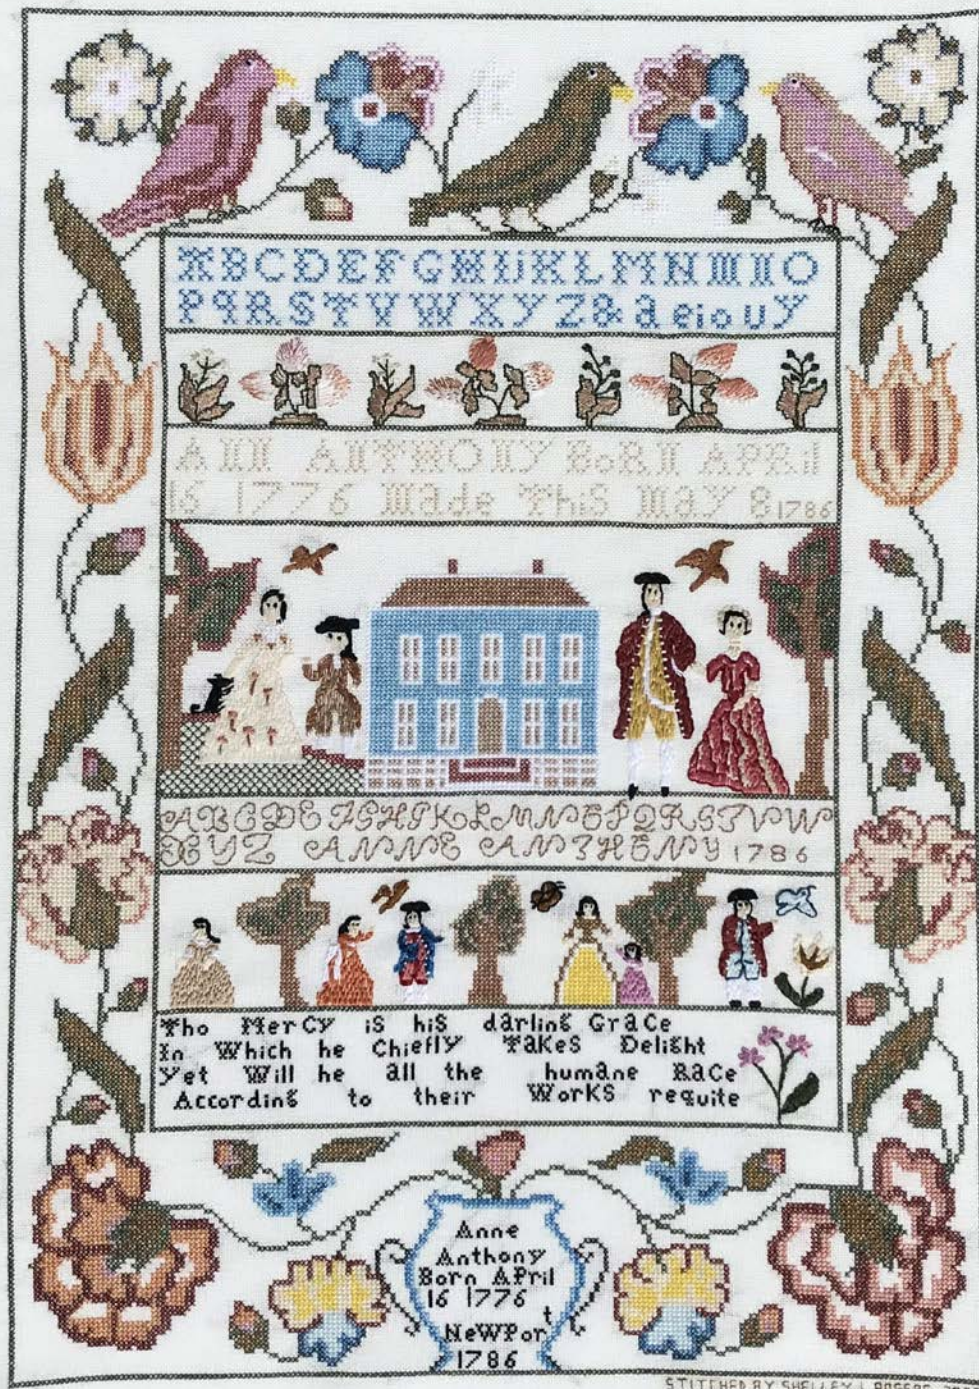 ABCDEFGHIJKLMNNO
PqRSTVWXYZ& aeiouy
ANN ANTHONY BoRN APRil
16 1776 Made This May 8 1786
ABCDEFGHIKLMNOPQRSTVW
XYZ ANNE ANTHONY 1786
Tho Mercy is his darling Grace
In Which he Chiefly Takes Delight
Yet Will he all the humane Race
According to their Works requite
Anne
Anthony
Born April
16 1776
NeWPort
1786
STITCHED BY SHELLEY